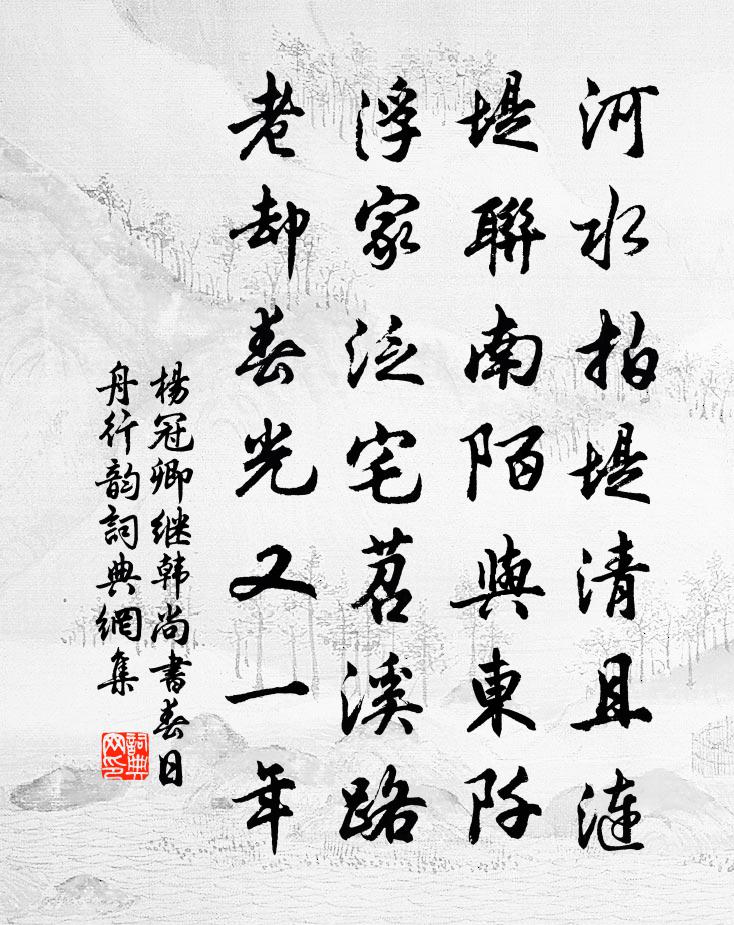 河水拍堤清且漣
堤聯南陌與東阡
浮家泛宅苕溪路
老却春光又一年
楊冠卿继韩尚書春日
舟行韵詞典網集
詞典网印